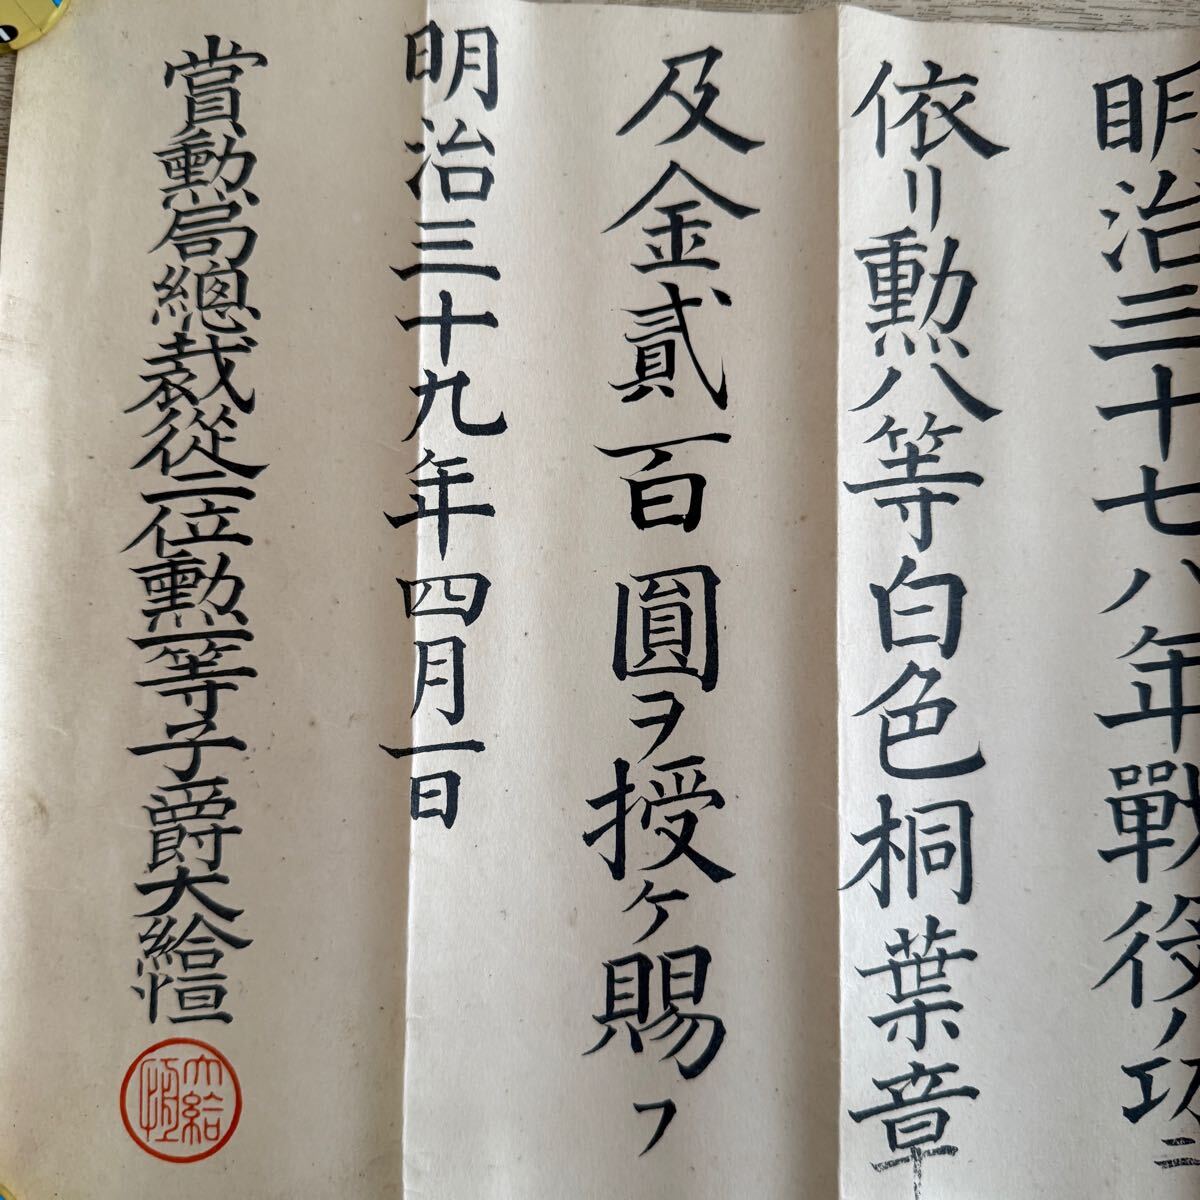 明治三十七八年戰役ノ功ニ
依リ勲八等白色桐葉章
及金貳百圓ヲ授ケ賜フ
明治三十九年四月一日
賞勲局總裁從二位勲一等子爵大給恒
大給恒